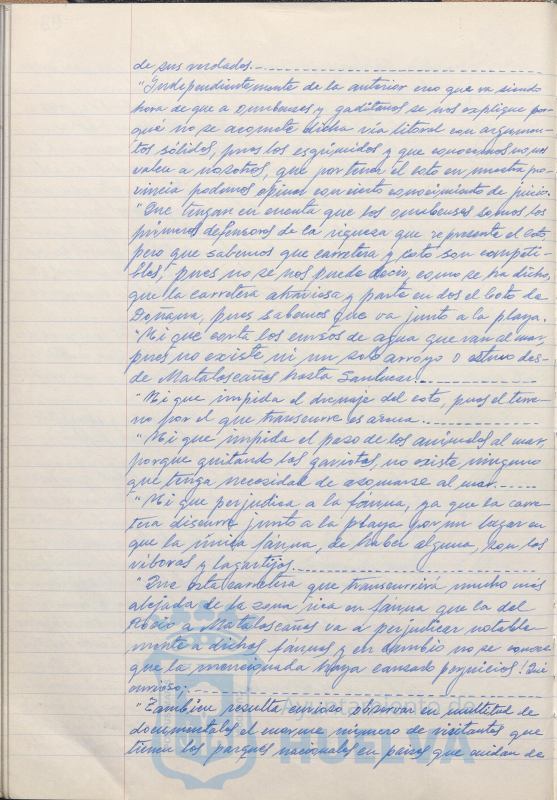 de sus vedados.-
"Independientemente de la anterior creo que va siendo
hora de que a onubenses y gaditanos se nos explique por-
qué no se acomete dicha vía litoral con argumen-
tos sólidos, pues los esgrimidos y que conocemos no nos
valen a nosotros, que por tener el coto en nuestra pro-
vincia podemos opinar con cierto conocimiento de juicio.
"Que tengan en cuenta que los onubenses somos los
primeros defensores de la riqueza que representa el coto
pero que sabemos que carretera y coto son compati-
bles, pues no se nos puede decir, como se ha dicho,
que la carretera atraviesa y parte en dos el Coto de
Doñana, pues sabemos que va junto a la playa.
"Ni que corta los cursos de agua que van al mar,
pues no existe ni un solo arroyo o estero des-
de Matalascañas hasta Sanlucar.
"Ni que impida el drenaje del coto, pues el terre-
no por el que transcurre es arena.
"Ni que impida el paso de los animales al mar,
porque quitando las gaviotas, no existe ninguno
que tenga necesidad de asomarse al mar.
"Ni que perjudica a la fáuna, ya que la carre-
tera discurre junto a la playa por un lugar en
que la única fáuna, de haber alguna, son las
víboras y lagartijos.
"Que esta carretera que transcurrirá mucho más
alejada de la zona rica en fáuna que la del
Rocío a Matalascañas va a perjudicar notable-
mente a dichas fáunas y en cambio no se conoce
que la mencionada haya causado perjuicios! Qué
curioso.-
"Tambien resulta curioso observar en multitud de
documentales el enorme número de visitantes que
tienen los parques nacionales en paises que cuidan de
Ayuntamiento de
HUELVA